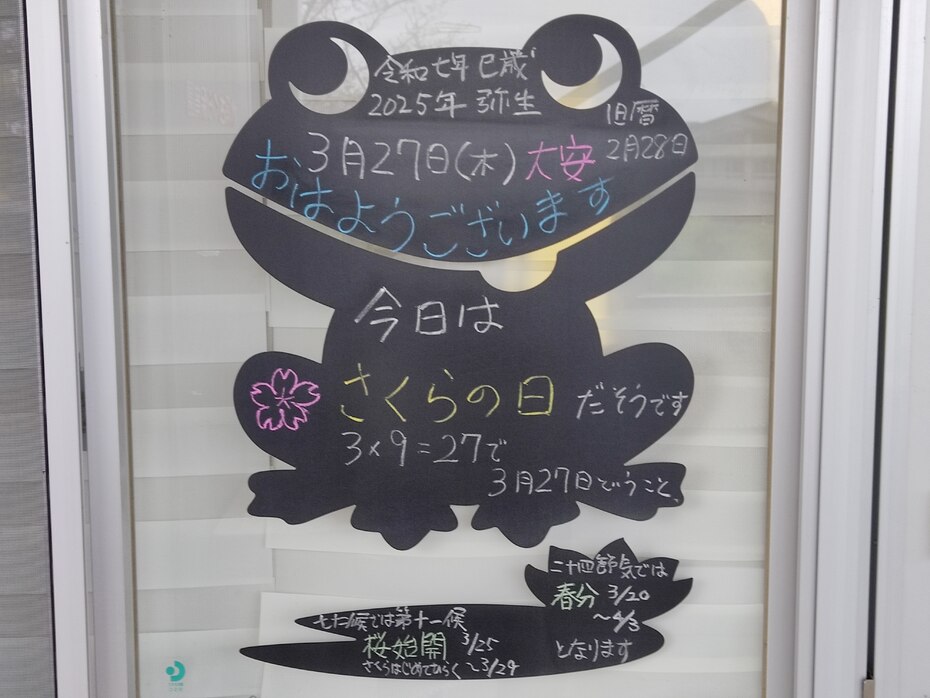 令和七年 巳歳
2025年 弥生
旧暦
2月28日
3月27日(木) 大安
おはようございます
今日は
さくらの日 だそうです
3×9=27で
3月27日ということ、
二十四節気では
春分 3/20
～4/3
となります
七十二候では第十一候
桜始開 3/25
さくらはじめてひらく ～3/29